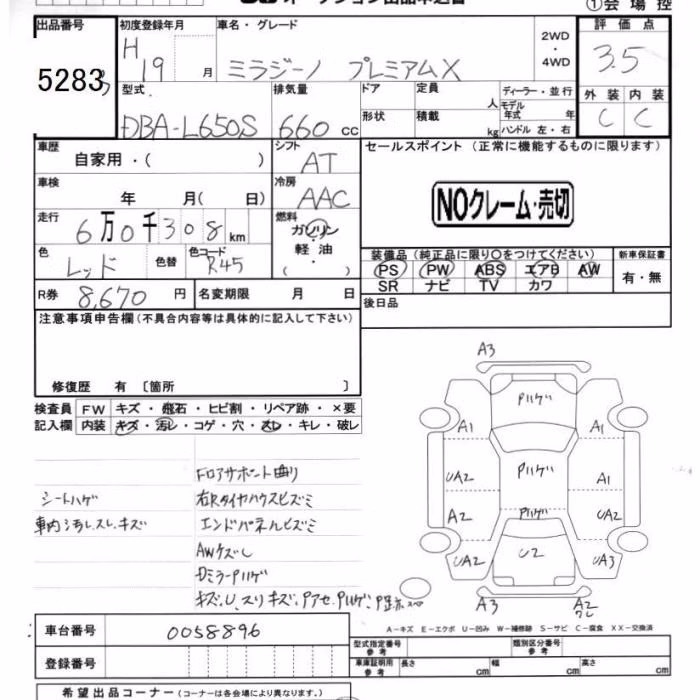 オークション出品申込書
①会場控
出品番号 初度登録年月 車名・グレード 2WD・4WD 評価点
5283 H19 月 ミラジーノ プレミアムX 3.5
型式 排気量 ドア 定員 人 ディーラー・並行 外装 内装
DBA-L650S 660 cc 形状 積載 kg モデル年式 年 C C
ハンドル 左・右
車歴 自家用・( ) シフト AT セールスポイント (正常に機能するものに限ります)
車検 年 月( 日) 冷房 AAC NOクレーム・売切
走行 6万0千308km 燃料 ガソリン・軽油・( )
色 レッド 色替 色コード R45 装備品 (純正品に限り○をつけてください) 新車保証書
PS PW ABS エアB AW 有・無
SR ナビ TV カワ
R券 8,670円 名変期限 月 日 後日品
注意事項申告欄 (不具合内容等は具体的に記入して下さい)
修復歴 有 〔箇所 〕
検査員記入欄 FW キズ・飛石・ヒビ割・リペア跡・×要
内装 キズ・汚レ・コゲ・穴・スレ・キレ・破レ
Fロアサポート曲り
シートハゲ 右Rタイヤハウスヒズミ
車内汚レ、スレ、キズ エンドパネルヒズミ
AWケズレ
DミラーPハゲ
キズ、U、スリキズ、Pアセ、Pハゲ、
A3
Pハゲ
A1 A1
UA2 Pハゲ A1
A2 Pハゲ UA2
UA2 U2 UA3
A3 A2
A-キズ E-エクボ U-凹み W-補修跡 S-サビ C-腐食 XX-交換済
車台番号 0058896 型式指定番号 参考 類別区分番号 参考
登録番号 車庫証明用 参考 長さ cm 幅 cm 高さ cm
希望出品コーナー (コーナーは各会場により異なります。)